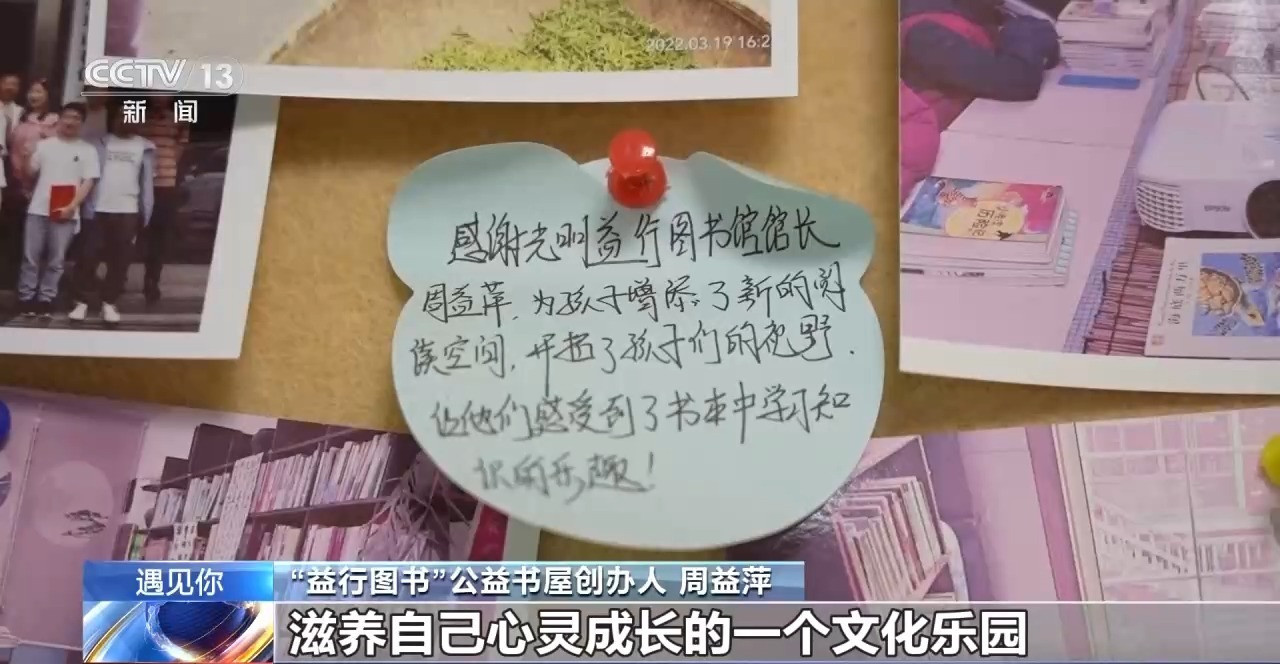 2022.03.19 16:2
CCTV 13
新闻
感谢光明益行图书馆馆长
周益萍,为孩子增添了新的阅
读空间,开拓了孩子们的视野.
让他们感受到了书本中学习知
识的乐趣!
EPSON
历险记
海底两万里
遇见你
“益行图书”公益书屋创办人 周益萍
滋养自己心灵成长的一个文化乐园